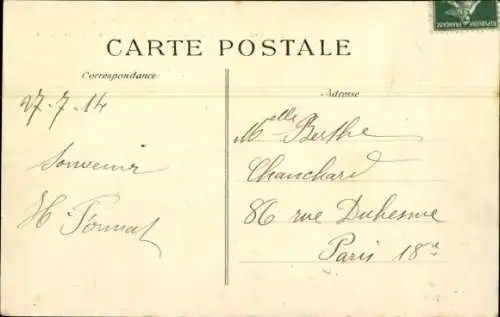 CARTE POSTALE
Correspondance
Adresse
27-7-14
Souvenir
Melle Berthe
Chanchard
86 rue Duhesme
Paris 18e